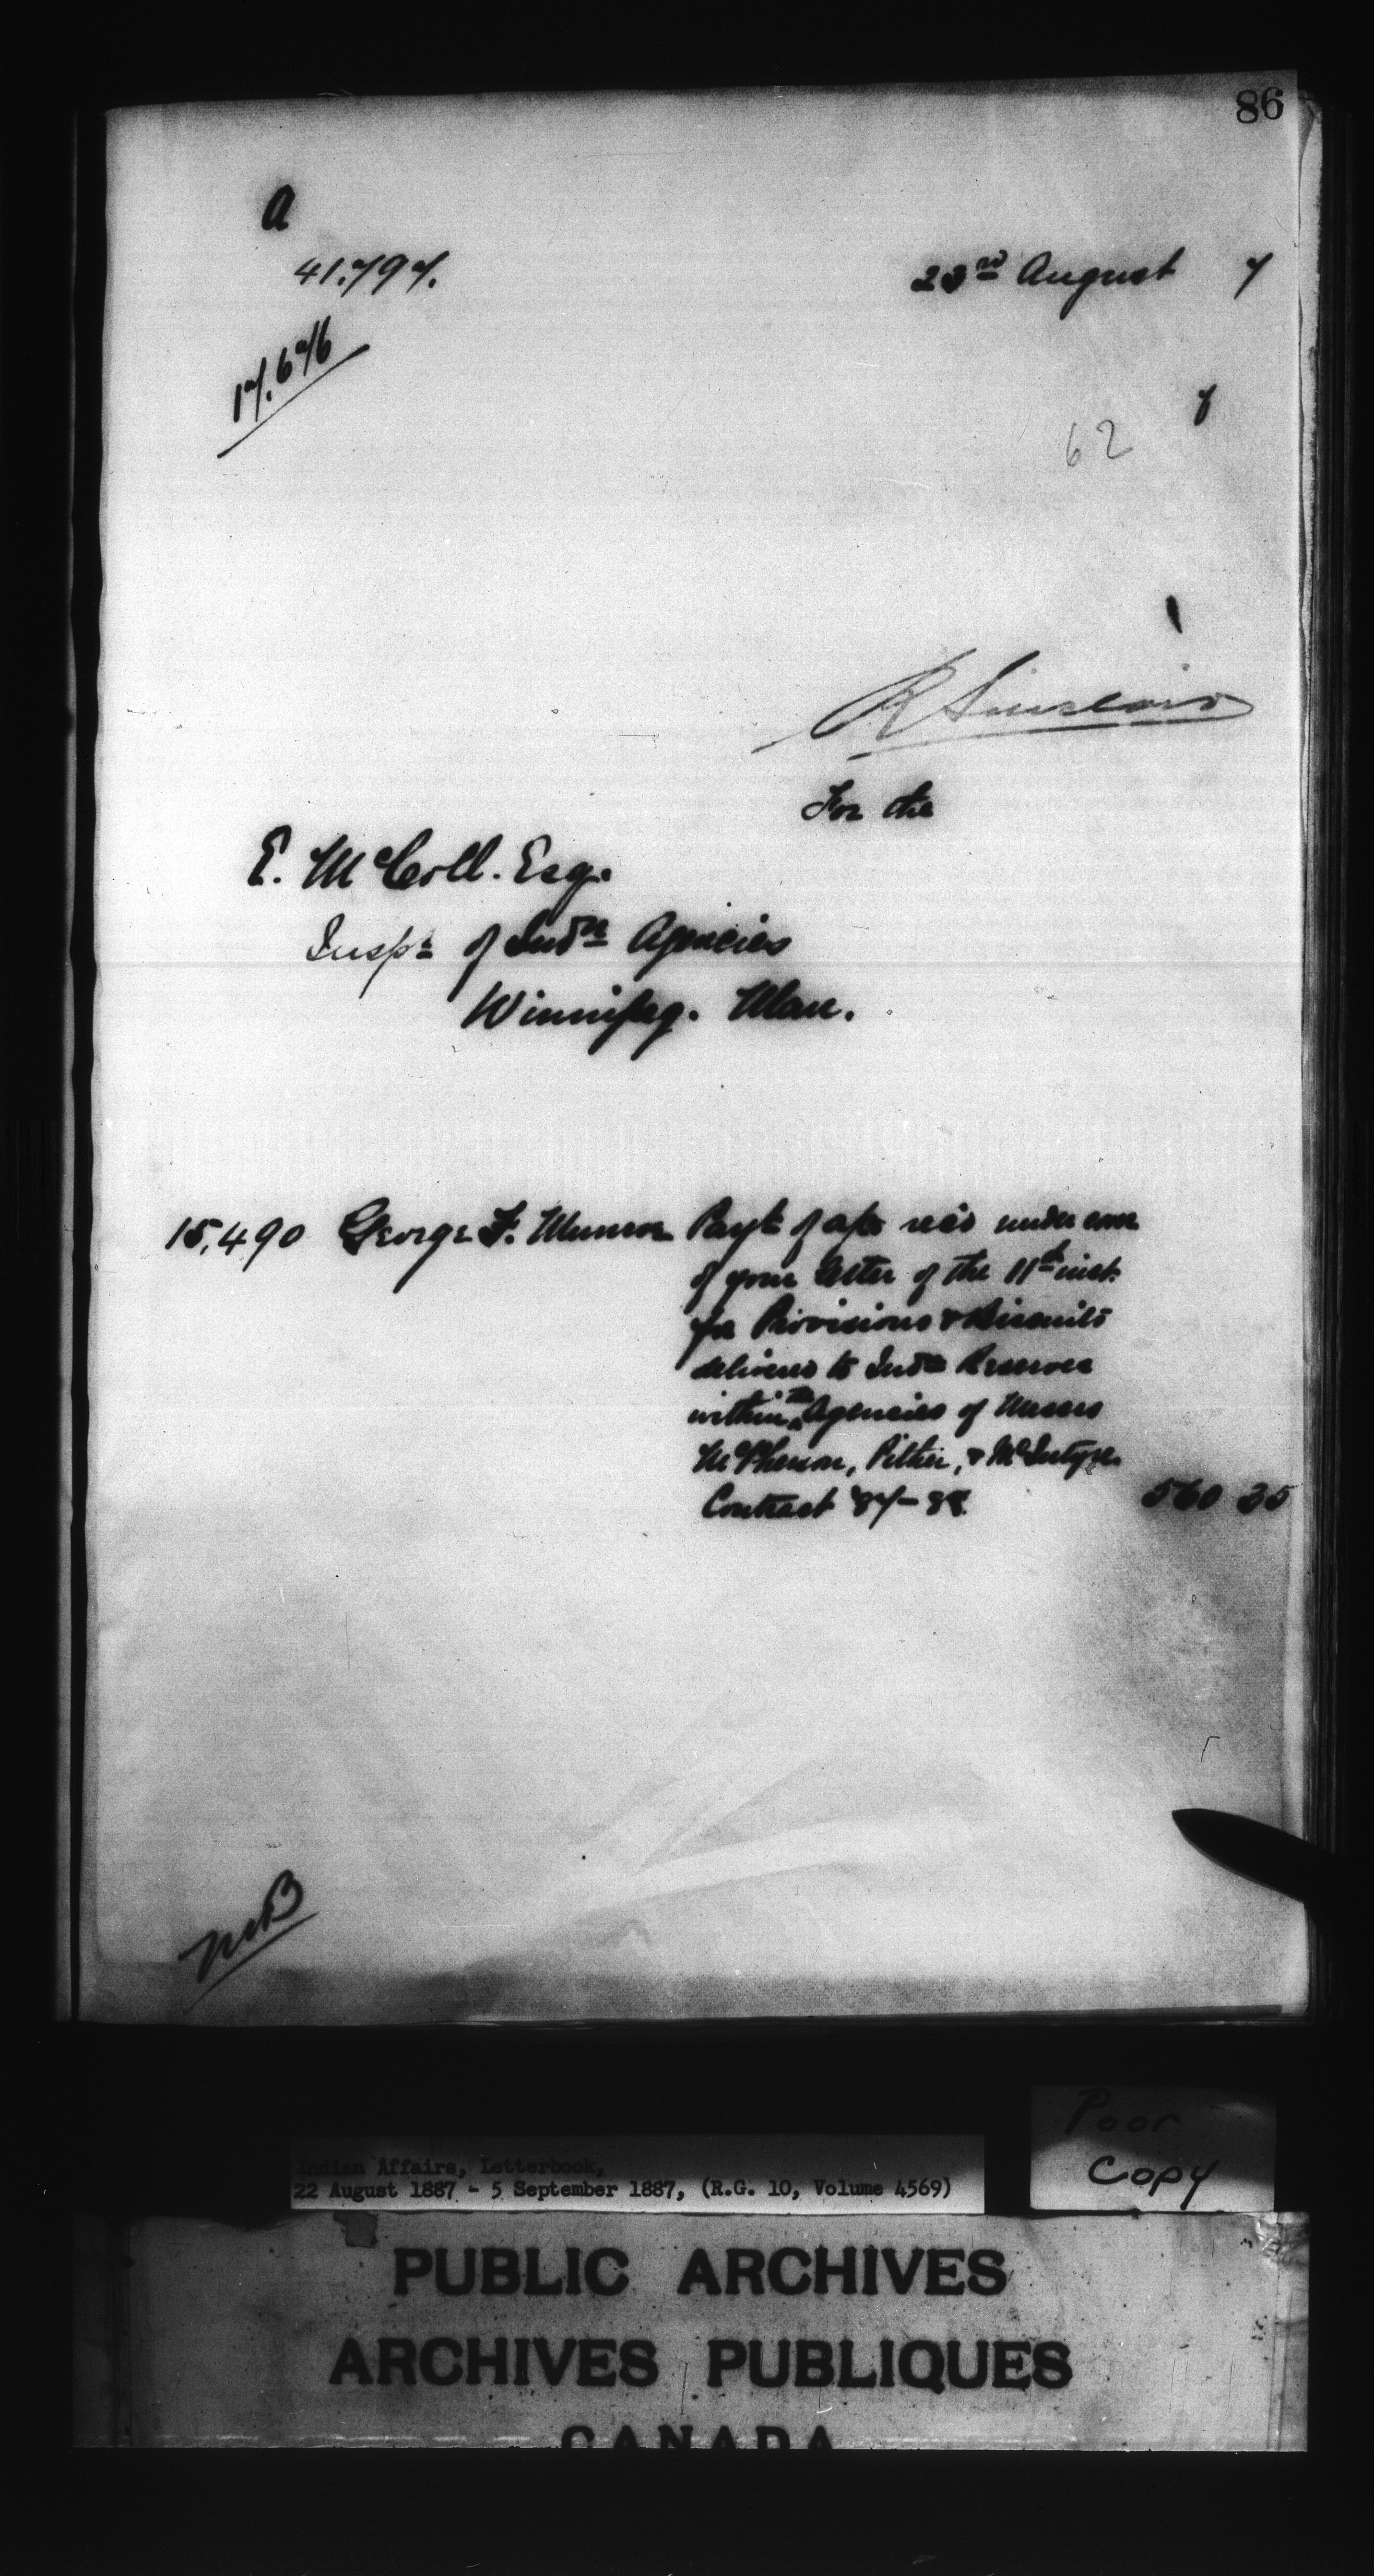 86
A
41.797.
23rd August 7
17.676
7
62
R Sinclair
For the
E. McColl. Esq.
Inspr of Indn Agencies
Winnipeg. Man.
15,490 George F. Munroe Payt of a/cs rec'd under cover
of your letter of the 11th inst.
for Provisions & Biscuits
delivered to Indn Reserves
within the Agencies of Messrs
McPherson, Pither, & McIntyre.
Contract '87-88. 560 35
Indian Affairs, Letterbook,
22 August 1887 - 5 September 1887, (R.G. 10, Volume 4569)
Poor
Copy
PUBLIC ARCHIVES
ARCHIVES PUBLIQUES
CANADA